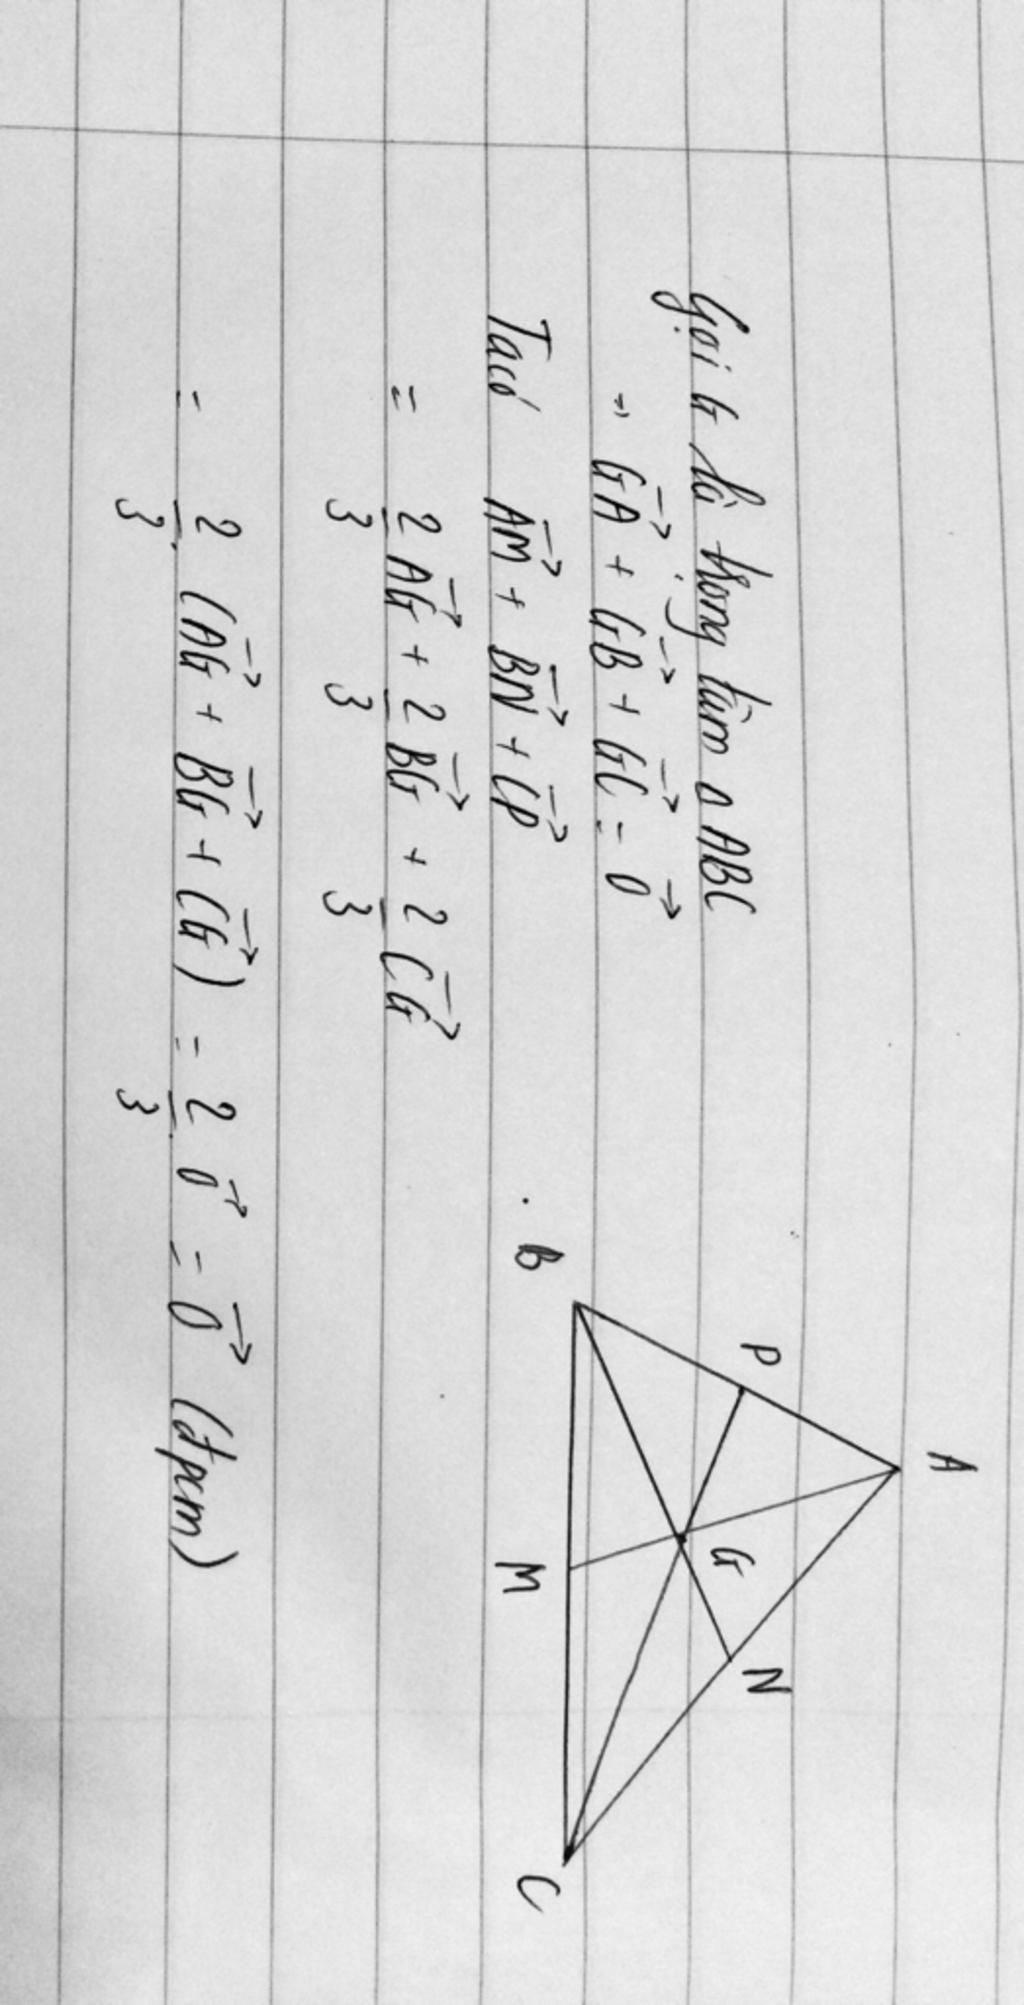 Gọi G là trọng tâm Δ ABC
=> GA→ + GB→ + GC→ = 0→
Ta có AM→ + BN→ + CP→
= 2/3 AG→ + 2/3 BG→ + 2/3 CG→
= 2/3 (AG→ + BG→ + CG→) = 2/3 . 0→ = 0→ (đpcm)
A
P
G
N
B
M
C